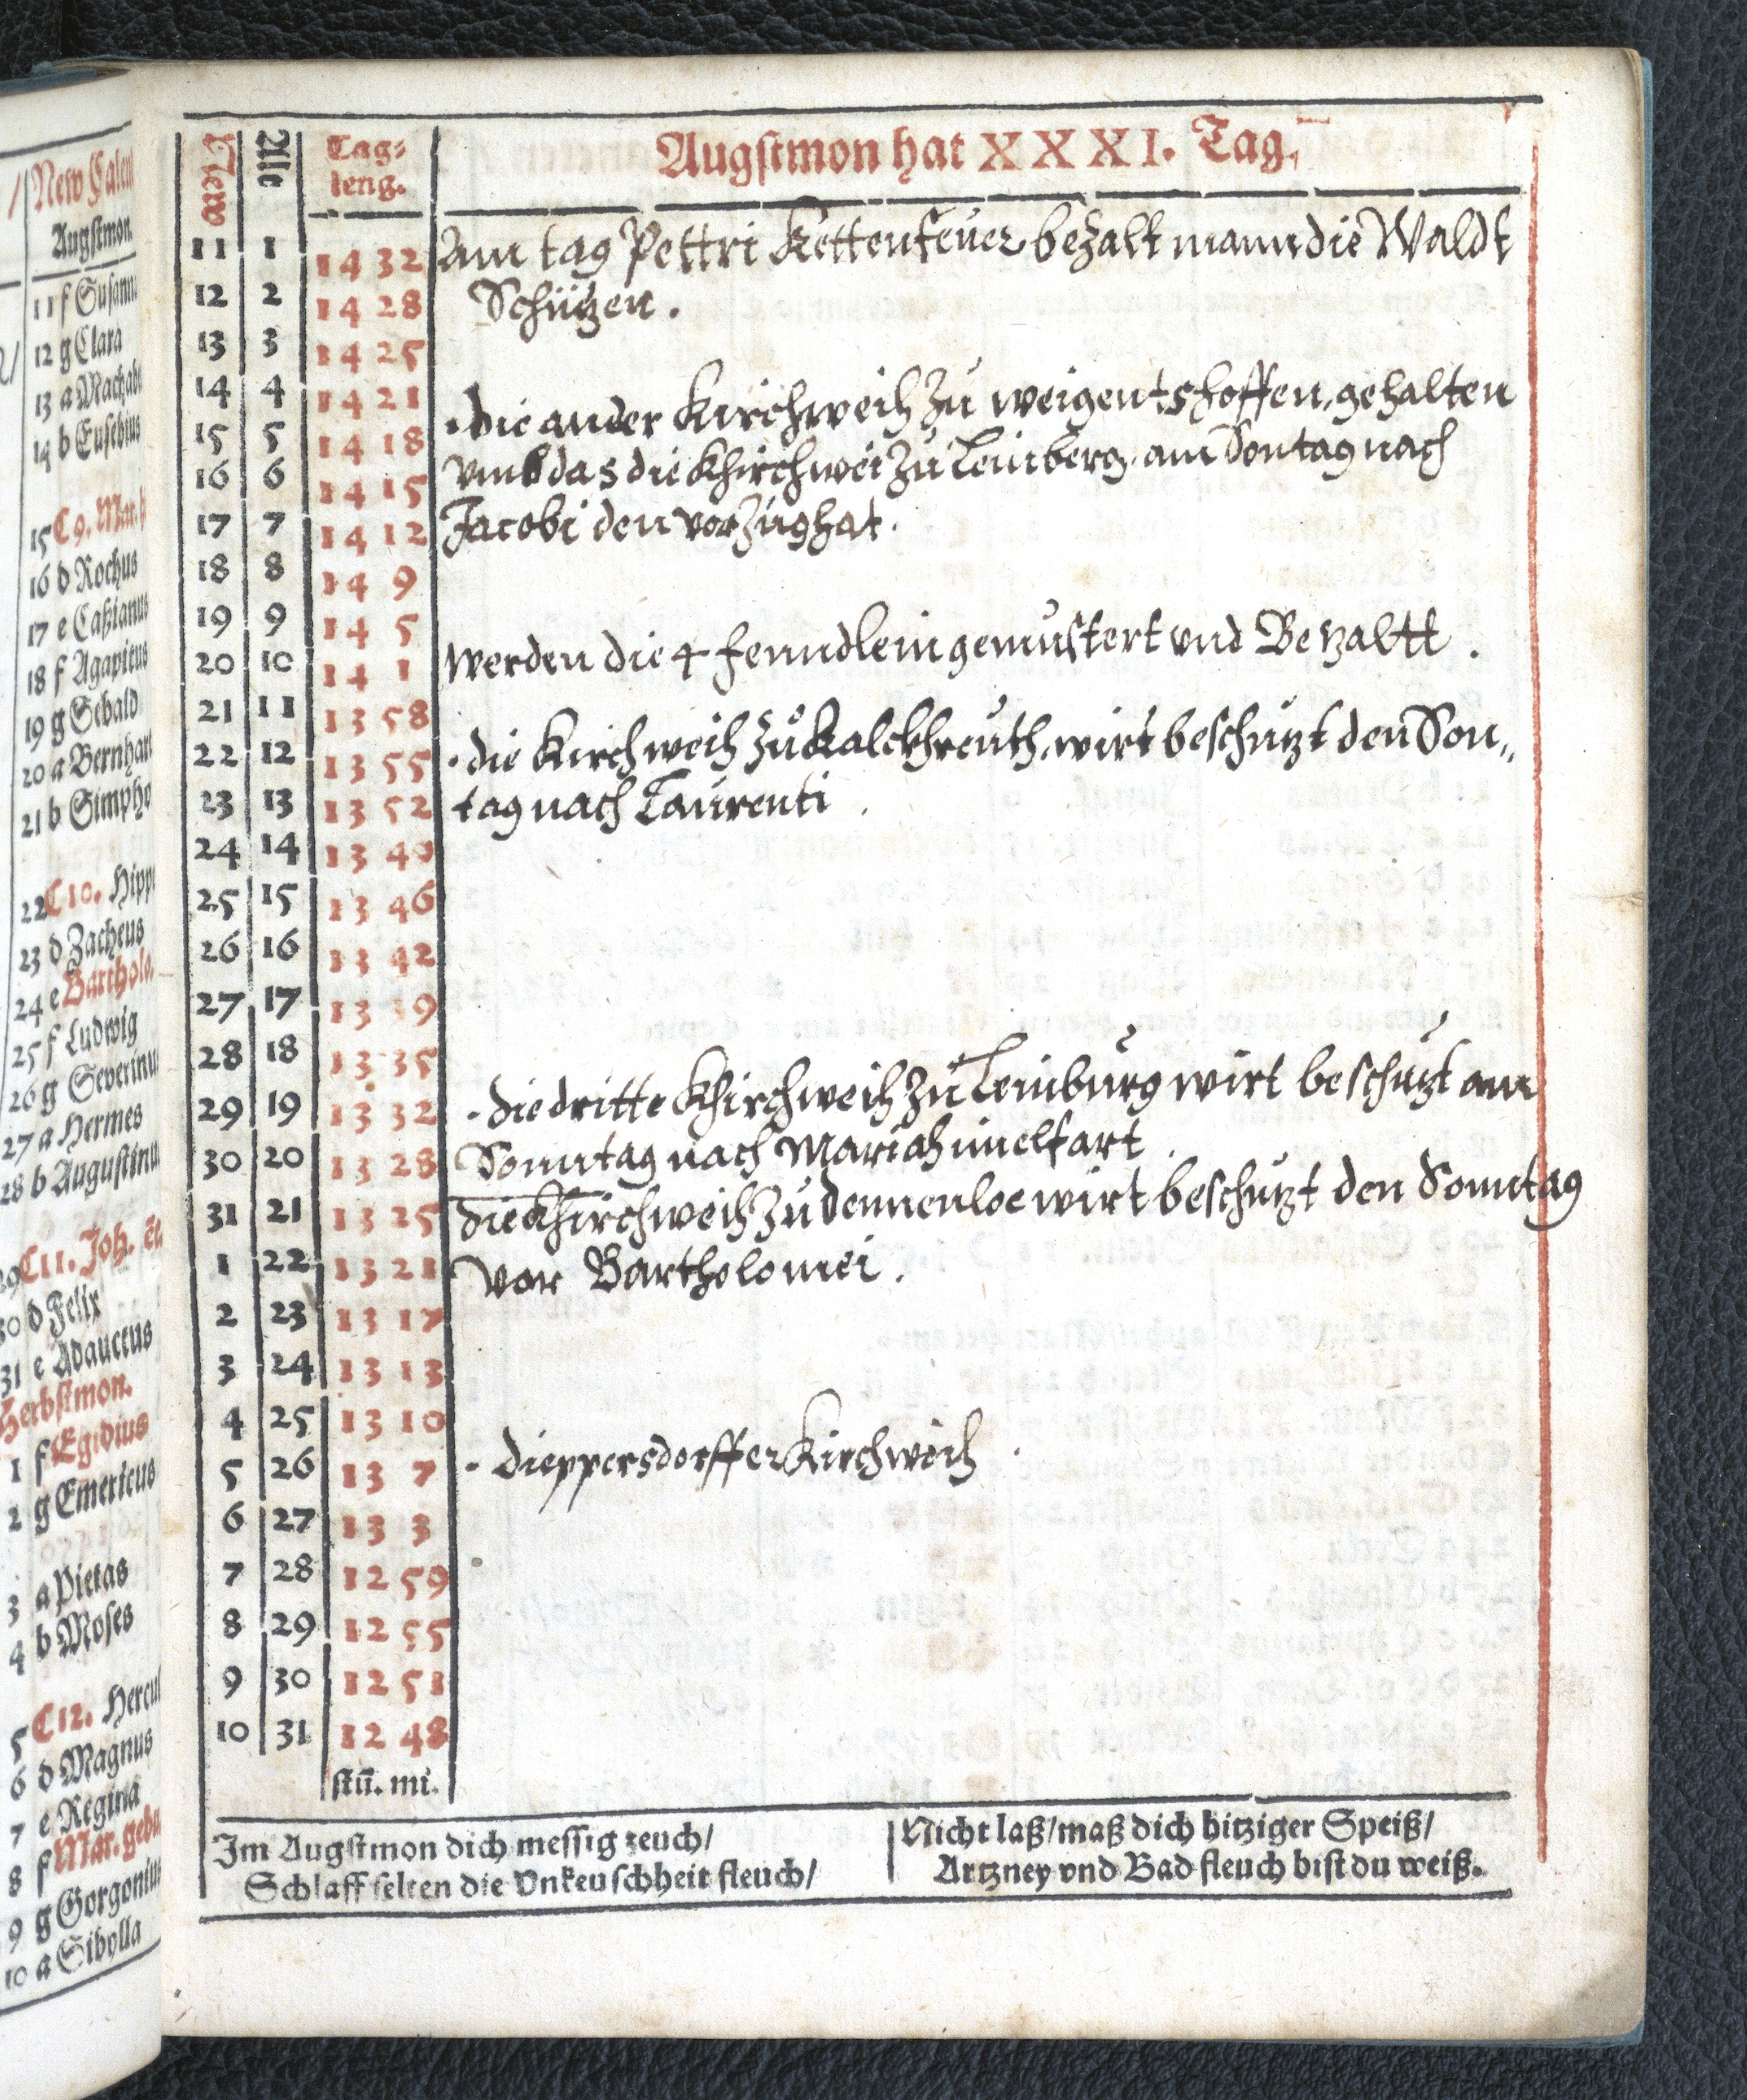 New Calen
Augstmon
11 f Susann
12 g Clara
13 a Machab
14 b Eusebius
15 C 9. Mar. h
16 d Rochus
17 e Caßianus
18 f Agapitus
19 g Sebald
20 a Bernhar
21 b Simpho
22 C 10. Hipp
23 d Zacheus
24 e Bartholo.
25 f Ludwig
26 g Severinu
27 a Hermes
28 b Augustinu
29 C 11. Joh. e
30 d Felix
31 e Adauctus
Herbstmon.
1 f Egidius
2 g Emericus
3 a Pietas
4 b Moses
5 C 12. Hercul
6 d Magnus
7 e Regina
8 f Mar. gebu
9 g Gorgonius
10 a Sibylla
New Alt Tag-leng. Augstmon hat XXXI. Tag.
11 1 14 32 Am tag Pettri Kettenfeuer bezalt mann die Waldt
12 2 14 28 Schützen.
13 3 14 25
14 4 14 21 die ander Kirchweih zu weigentshoffen, gehalten
15 5 14 18 vmb das die Khirchwei zu Leinberg, am Sontag nach
16 6 14 15
17 7 14 12 Jacobi den vorzug hat.
18 8 14 9
19 9 14 5
20 10 14 1 werden die 4 Fenndlein gemustert vnd Betzaltt.
21 11 13 58
22 12 13 55 die Kirchweih zu Kalckhreuth, wirt beschutzt den Son,,
23 13 13 52 tag nach Laurenti
24 14 13 49
25 15 13 46
26 16 13 42
27 17 13 39
28 18 13 35
29 19 13 32 die dritte Khirchweih zu Leinburg wirt beschutzt am
30 20 13 28 Sonntag nach Maria himelfart
31 21 13 25 die Khirchweih zu dennenloe wirt beschutzt den Sonntag
1 22 13 21 vor Bartholomei.
2 23 13 17
3 24 13 13
4 25 13 10
5 26 13 7 dieppersdorffer Kirchweih
6 27 13 3
7 28 12 59
8 29 12 55
9 30 12 51
10 31 12 48
stū. mi.
Im Augstmon dich messig zeuch/
Schlaff selten die Vnkeuschheit fleuch/
Nicht laß/maß dich hitziger Speiß/
Artzney vnd Bad fleuch bist du weiß.